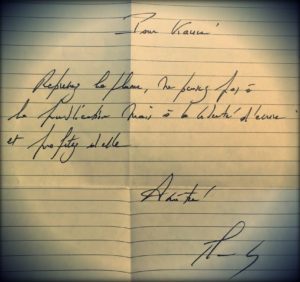 Pour
Reprenez la plume, ne pensez pas à
la publication mais à la liberté d'écrire
et profitez d'elle.
Amitié!